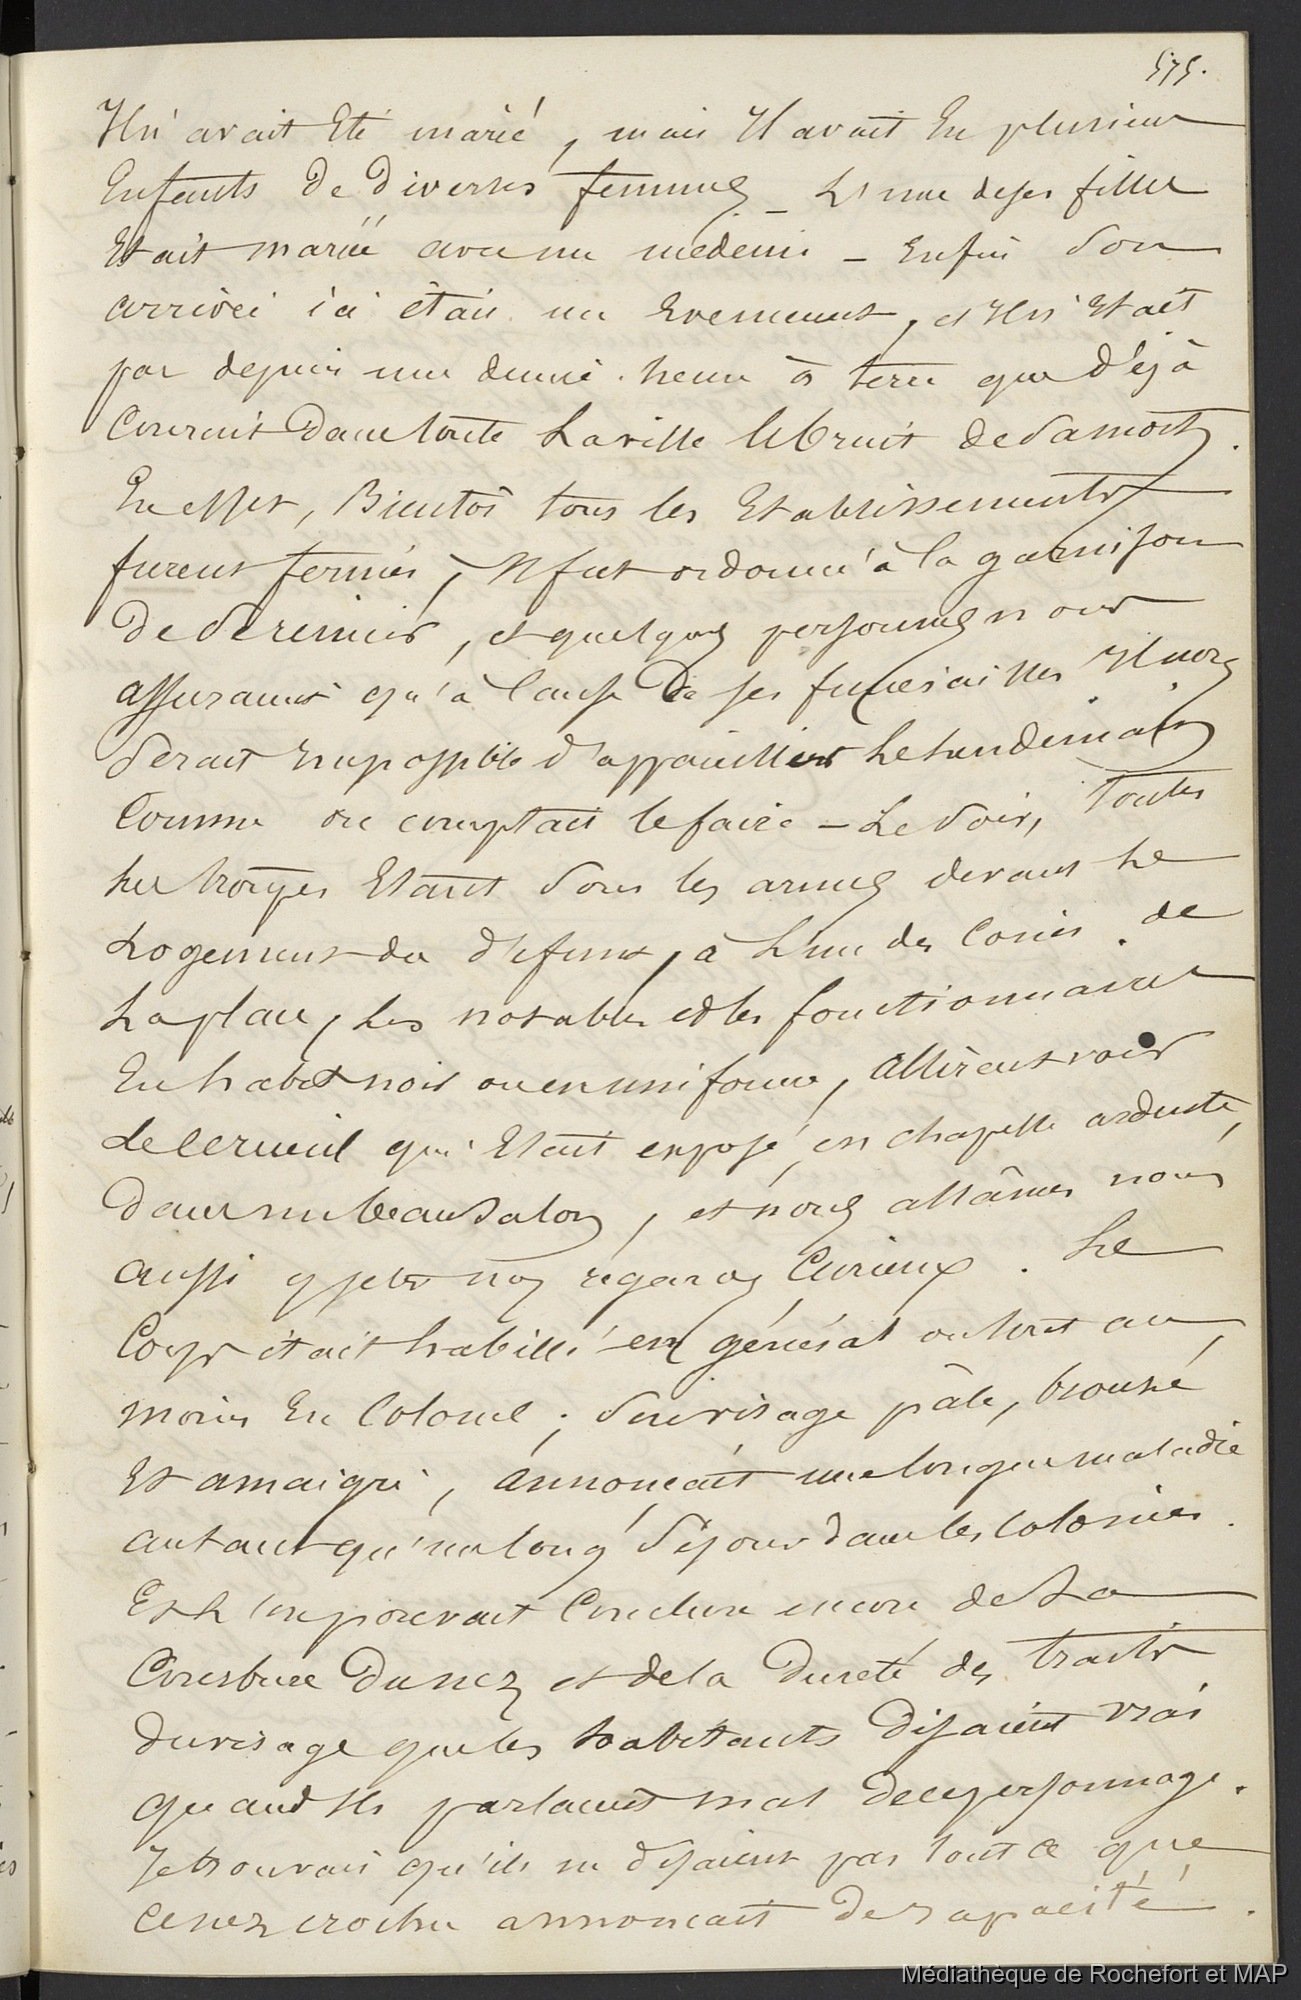 575.
Il n'avait Eté marié, mais Il avait Eu plusieurs
Enfants de diverses femmes _ L'une de ses filles
Etait mariée avec un médecin _ Enfin Son
arrivée ici était un Evenement, et Il n'Etait
pas depuis une demie heure à terre que déjà
Courait Dans toute La ville le bruit de Sa mort.
En effet, Bientôt tous les Etablissements
furent fermés, Il fut ordonné à la garnison
De Se reunir, et quelques personnes nous
assuraient qu'à Cause De ses funerailles Il nous
Serait Impossible d'appareiller Le Lendemain
Comme on comptait le faire _ Le Soir, Toutes
Les troupes Etant Sous les armes devant Le
Logement du défunt, à L'un des Coins de
La place, Les notables et les fonctionnaires
En habit noir ou en uniforme, allèrent voir
Le Cercueil qui Etait exposé en chapelle ardente,
Dans un beau Salon, et nous allâmes nous
aussi y jeter nos régards Curieux. Le
Corps était habillé en général ou tout au
moins En Colonel; Son visage pâle, bronzé
Et amaigri, annonçait une longue maladie
autant qu'un long Séjour dans les Colonies.
Et L'on pouvait Conclure encore de La
Courbure Du nez et de la Dureté des traits
Du visage que les habitants Disaient vrai
quand Ils parlaient mal De ce personnage.
Je trouvais qu'ils ne disaient pas tout ce que
Ce nez crochu annoncait De rapacité.
Médiathèque de Rochefort et MAP